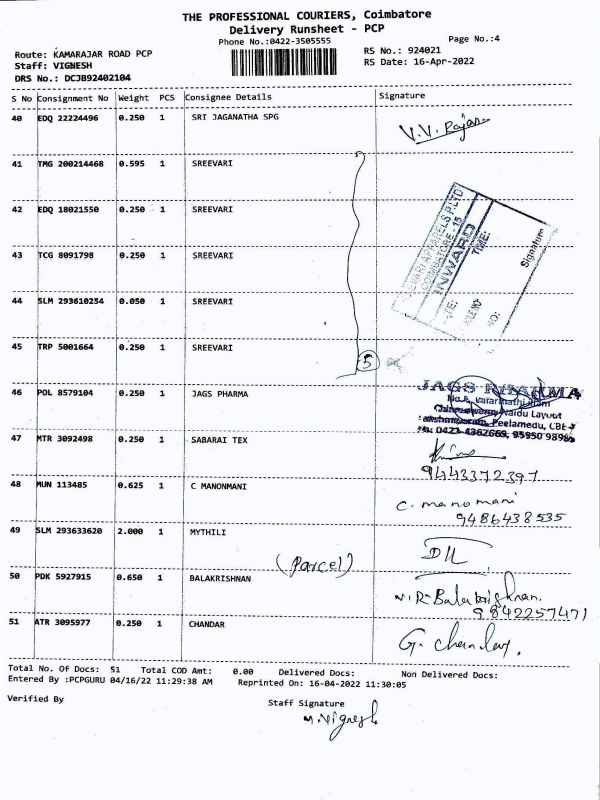 THE PROFESSIONAL COURIERS, Coimbatore
Delivery Runsheet - PCP
Phone No.:0422-3505555
Page No.:4
Route: KAMARAJAR ROAD PCP
RS No.: 924021
Staff: VIGNESH
RS Date: 16-Apr-2022
DRS No.: DCJB92402104
S No Consignment No Weight PCS Consignee Details Signature
40 EDQ 22224496 0.250 1 SRI JAGANATHA SPG V.V. Rajan
41 TMG 200214468 0.595 1 SREEVARI
42 EDQ 18021550 0.250 1 SREEVARI
43 TCG 8091798 0.250 1 SREEVARI
44 SLM 293610254 0.050 1 SREEVARI
45 TRP 5001664 0.250 1 SREEVARI
5
APPARELS P LTD
COIMBATORE - 15
INWARD
TIME:
NO:
Signature
46 POL 8579104 0.250 1 JAGS PHARMA
JAGS PHARMA
Naidu Layout
Peelamedu, CBE-4
Ph: 0422-4362669,
47 MTR 3092498 0.250 1 SABARAI TEX
9443372397
48 MUN 113485 0.625 1 C MANONMANI
C. manomani
9486438535
49 SLM 293633620 2.000 1 MYTHILI
(Parcel)
50 PDK 5927915 0.650 1 BALAKRISHNAN
V.R. Balakrishnan.
9842257471
51 ATR 3095977 0.250 1 CHANDAR G. Chandar.
Total No. Of Docs: 51 Total COD Amt: 0.00 Delivered Docs: Non Delivered Docs:
Entered By :PCPGURU 04/16/22 11:29:38 AM Reprinted On: 16-04-2022 11:30:05
Verified By
Staff Signature
M.Vignesh